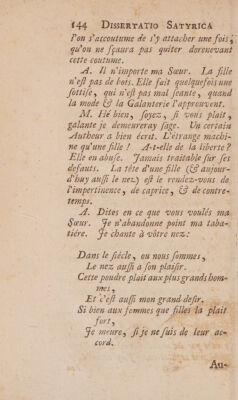 144 DISSERTATIO SATYRICA
l'on s'accoutume de s'y attacher une fois,
qu'on ne sçaura pas quiter dorenevant
cette coutume.
A. Il n'importe ma Sœur. La fille
n'est pas de bois. Elle fait quelquefois une
sottise, qui n'est pas mal seante, quand
la mode & la Galanterie l'appreuvent.
M. Hé bien, soyez, si vous plait,
galante je demeureray sage. Un certain
Autheur a bien écrit. L'étrange machi-
ne qu'une fille! A-t-elle de la liberte?
Elle en abuse. Jamais traitable sur ses
defauts. La tête d'une fille (& aujour-
d'huy aussi le nez) est le rendez-vous de
l'impertinence, de caprice, & de contre-
temps.
A. Dites en ce que vous voulés ma
Sœur. Je n'abandonne point ma taba-
tiére. Je chante à vôtre nez:
Dans le siécle, ou nous sommes,
Le nez aussi a son plaisir.
Cette poudre plait aux plus grands hom-
mes,
Et c'est aussi mon grand desir.
Si bien aux femmes que filles la plait
fort,
Je meure, si je ne suis de leur ac-
cord.
Au-